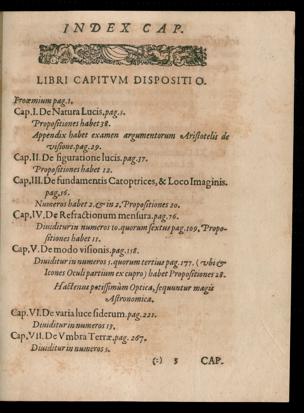 INDEX CAP.
LIBRI CAPITVM DISPOSITIO.
Proœmium pag.1.
Cap.I. De Natura Lucis, pag.5.
Propositiones habet 38.
Appendix habet examen argumentorum Aristotelis de
visione. pag.29.
Cap.II. De figuratione lucis. pag.37.
Propositiones habet 12.
Cap.III. De fundamentis Catoptrices, & Loco Imaginis.
pag.56.
Numeros habet 2. & in 2. Propositiones 20.
Cap.IV. De Refractionum mensura. pag.76.
Diuiditur in numeros 10. quorum sextus pag.109. Propo-
sitiones habet 11.
Cap.V. De modo visionis. pag.158.
Diuiditur in numeros 5. quorum tertius pag.177. (vbi &
Icones Oculi partium ex cupro) habet Propositiones 28.
Hactenus potissimùm Optica, sequuntur magis
Astronomica.
Cap.VI. De varia luce siderum. pag.221.
Diuiditur in numeros 13.
Cap.VII. De Vmbra Terræ, pag. 267.
Diuiditur in numeros 5.
(:) 5 CAP.